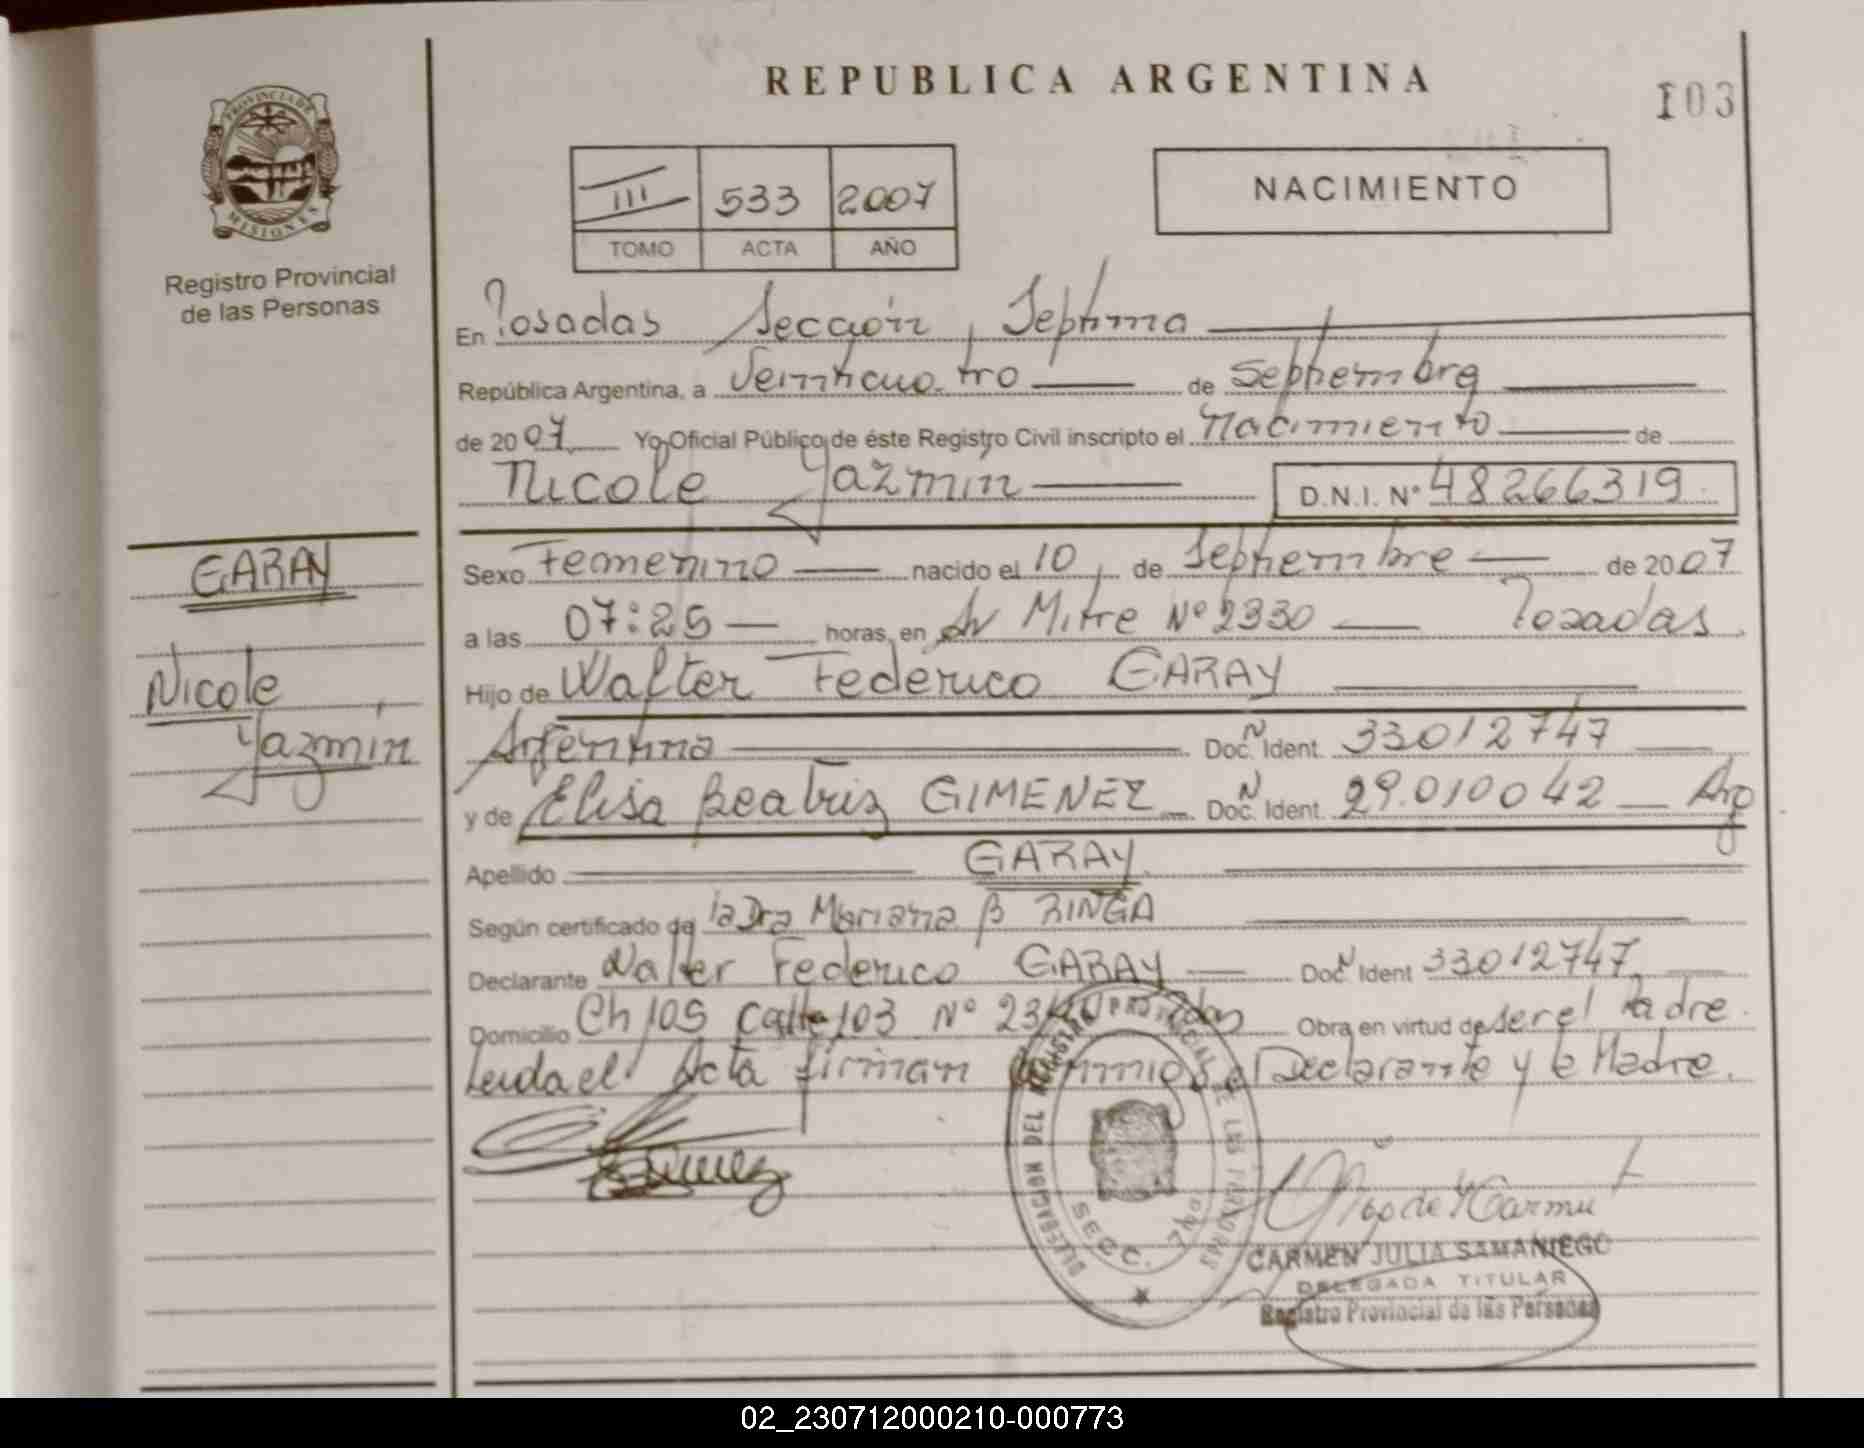 REPUBLICA ARGENTINA
103
PROVINCIA DE
MISIONES
Registro Provincial
de las Personas
III 533 2007
TOMO ACTA AÑO
NACIMIENTO
En Posadas Sección Septima
República Argentina, a Veinticuatro de Septiembre
de 2007 Yo Oficial Público de éste Registro Civil inscripto el Nacimiento de
Nicole Yazmin D.N.I. Nº 48266319
GARAY
Nicole
Yazmin
Sexo Femenino nacido el 10 de Septiembre de 2007
a las 07:25 horas, en Av Mitre Nº 2330 Posadas
Hijo de Walter Federico GARAY
Argentina Doc. N Ident. 33012747
y de Elisa Beatriz GIMENEZ Doc. N Ident. 29.010042 Arg
Apellido GARAY
Según certificado de la Dra Mariana B ZINGA
Declarante Walter Federico GARAY Doc. N Ident 33012747
Domicilio Ch 105 Calle 103 Nº Obra en virtud de ser el Padre.
Leida el Acta firman Declarante y la Madre.
DELEGACION DEL REGISTRO PROVINCIAL DE LAS PERSONAS
SECC. 7ma
CARMEN JULIA SAMANIEGO
DELEGADA TITULAR
Registro Provincial de las Personas
02_230712000210-000773